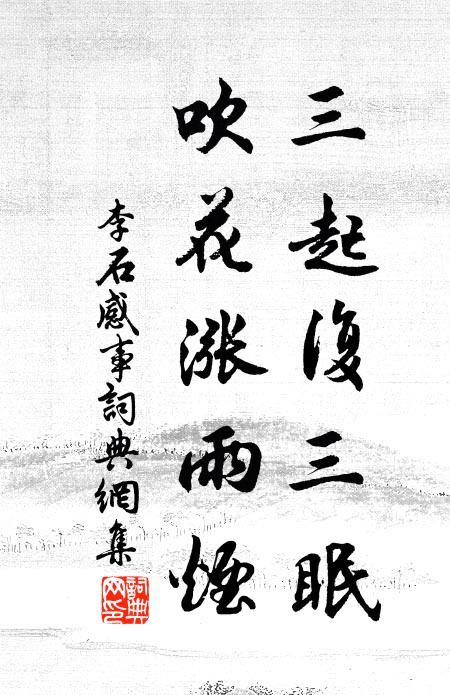 三起復三眠
吹花漲雨煙
李石感事詞典網集
詞典網印